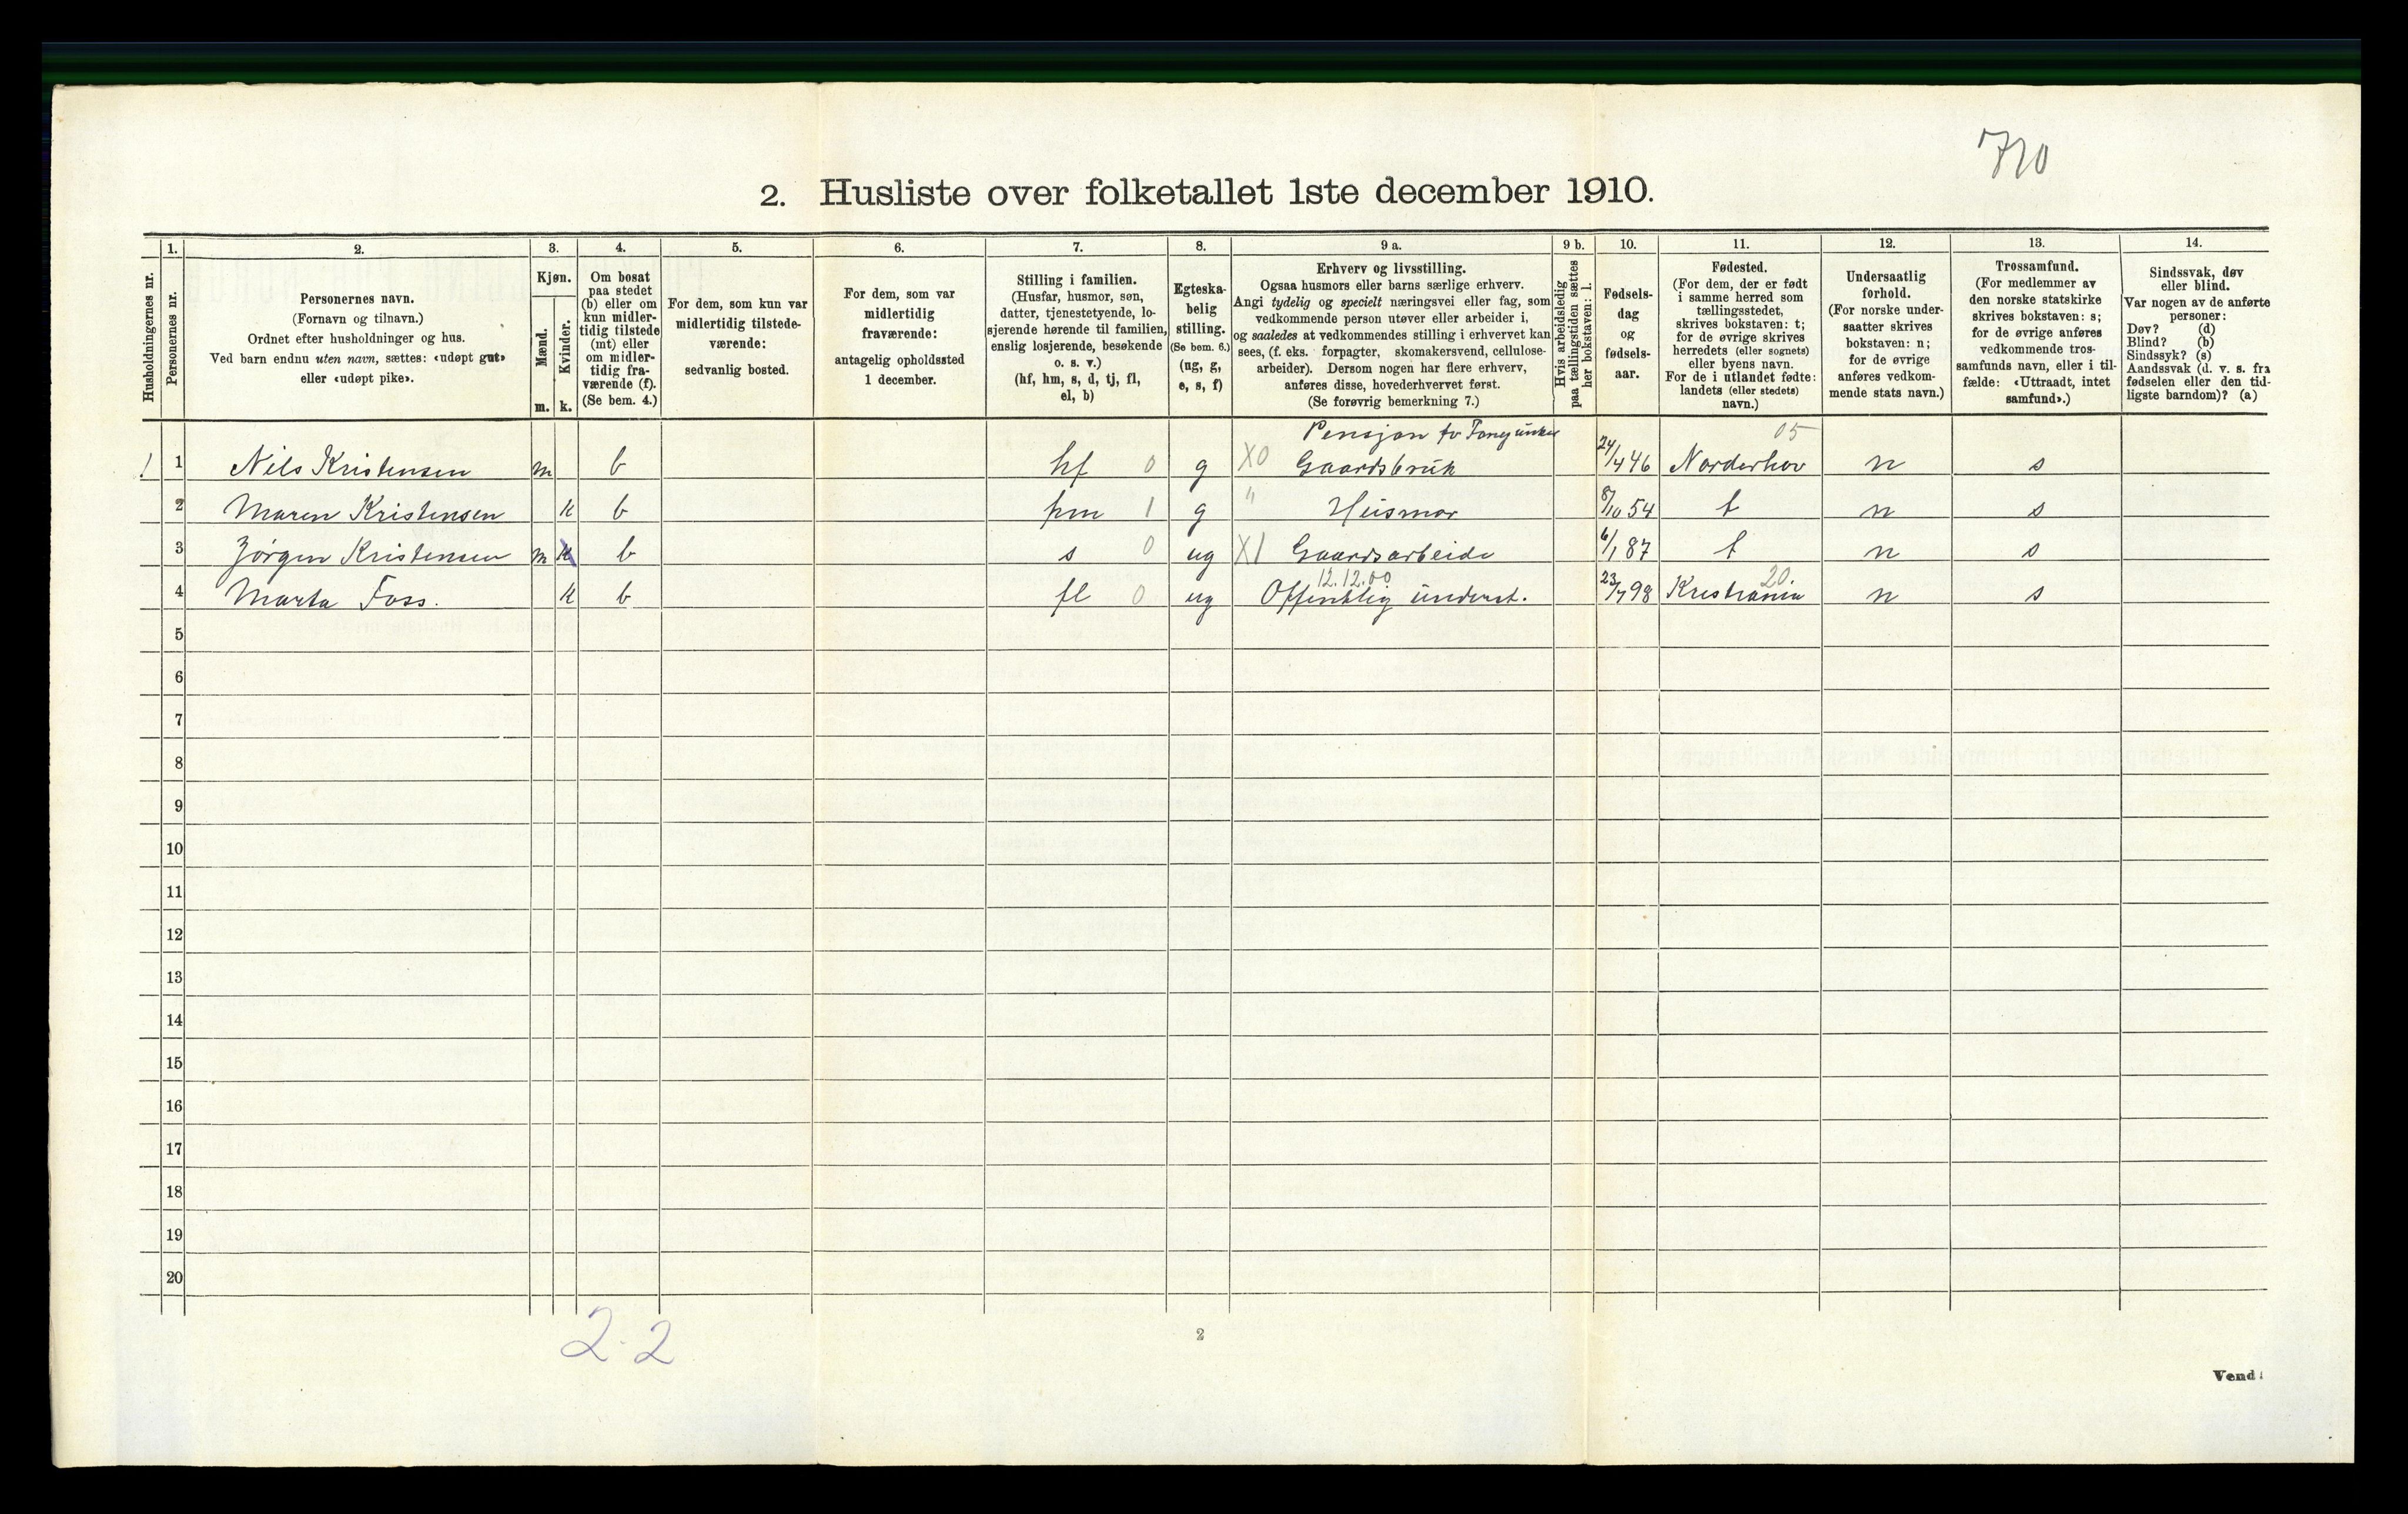 710
2. Husliste over folketallet 1ste december 1910.
Husholdningernes nr.
1.
Personernes nr.
2.
Personernes navn.
(Fornavn og tilnavn.)
Ordnet efter husholdninger og hus.
Ved barn endnu uten navn, sættes: «udøpt gut»
eller «udøpt pike».
3.
Kjøn.
Mænd.
Kvinder.
m. k.
4.
Om bosat
paa stedet
(b) eller om
kun midler-
tidig tilstede
(mt) eller
om midler-
tidig fra-
værende (f).
(Se bem. 4.)
5.
For dem, som kun var
midlertidig tilstede-
værende:
sedvanlig bosted.
6.
For dem, som var
midlertidig
fraværende:
antagelig opholdssted
1 december.
7.
Stilling i familien.
(Husfar, husmor, søn,
datter, tjenestetyende, lo-
sjerende hørende til familien,
enslig losjerende, besøkende
o. s. v.)
(hf, hm, s, d, tj, fl,
el, b)
8.
Egteska-
belig
stilling.
(Se bem. 6.)
(ug, g,
e, s, f)
9 a.
Erhverv og livsstilling.
Ogsaa husmors eller barns særlige erhverv.
Angi tydelig og specielt næringsvei eller fag, som
vedkommende person utøver eller arbeider i,
og saaledes at vedkommendes stilling i erhvervet kan
sees, (f. eks. forpagter, skomakersvend, cellulose-
arbeider). Dersom nogen har flere erhverv,
anføres disse, hovederhvervet først.
(Se forøvrig bemerkning 7.)
9 b.
Hvis arbeidsledig
paa tællingstiden sættes
her bokstaven: l.
10.
Fødsels-
dag
og
fødsels-
aar.
11.
Fødested.
(For dem, der er født
i samme herred som
tællingsstedet,
skrives bokstaven: t;
for de øvrige skrives
herredets (eller sognets)
eller byens navn.
For de i utlandet fødte:
landets (eller stedets)
navn.)
12.
Undersaatlig
forhold.
(For norske under-
saatter skrives
bokstaven: n;
for de øvrige
anføres vedkom-
mende stats navn.)
13.
Trossamfund.
(For medlemmer av
den norske statskirke
skrives bokstaven: s;
for de øvrige anføres
vedkommende tros-
samfunds navn, eller i til-
fælde: «Uttraadt, intet
samfund».)
14.
Sindssvak, døv
eller blind.
Var nogen av de anførte
personer:
Døv? (d)
Blind? (b)
Sindssyk? (s)
Aandssvak (d. v. s. fra
fødselen eller den tid-
ligste barndom)? (a)
Pensjon 05
1 1 Nils Kristensen m b hf 0 g X0 Gaardsbruk 24/4 46 Norderhov n s
2 Maren Kristensen k b hm 1 g " Husmor 8/10 54 t n s
3 Jörgen Kristensen m k b s 0 ug X1 Gaardsarbeide 6/1 87 t n s
12.12.00 20.
4 Marta Foss. k b fl 0 ug Offentlig underst. 23/7 98 Kristiania n s
5
6
7
8
9
10
11
12
13
14
15
16
17
18
19
20
2.2
2
Vend!